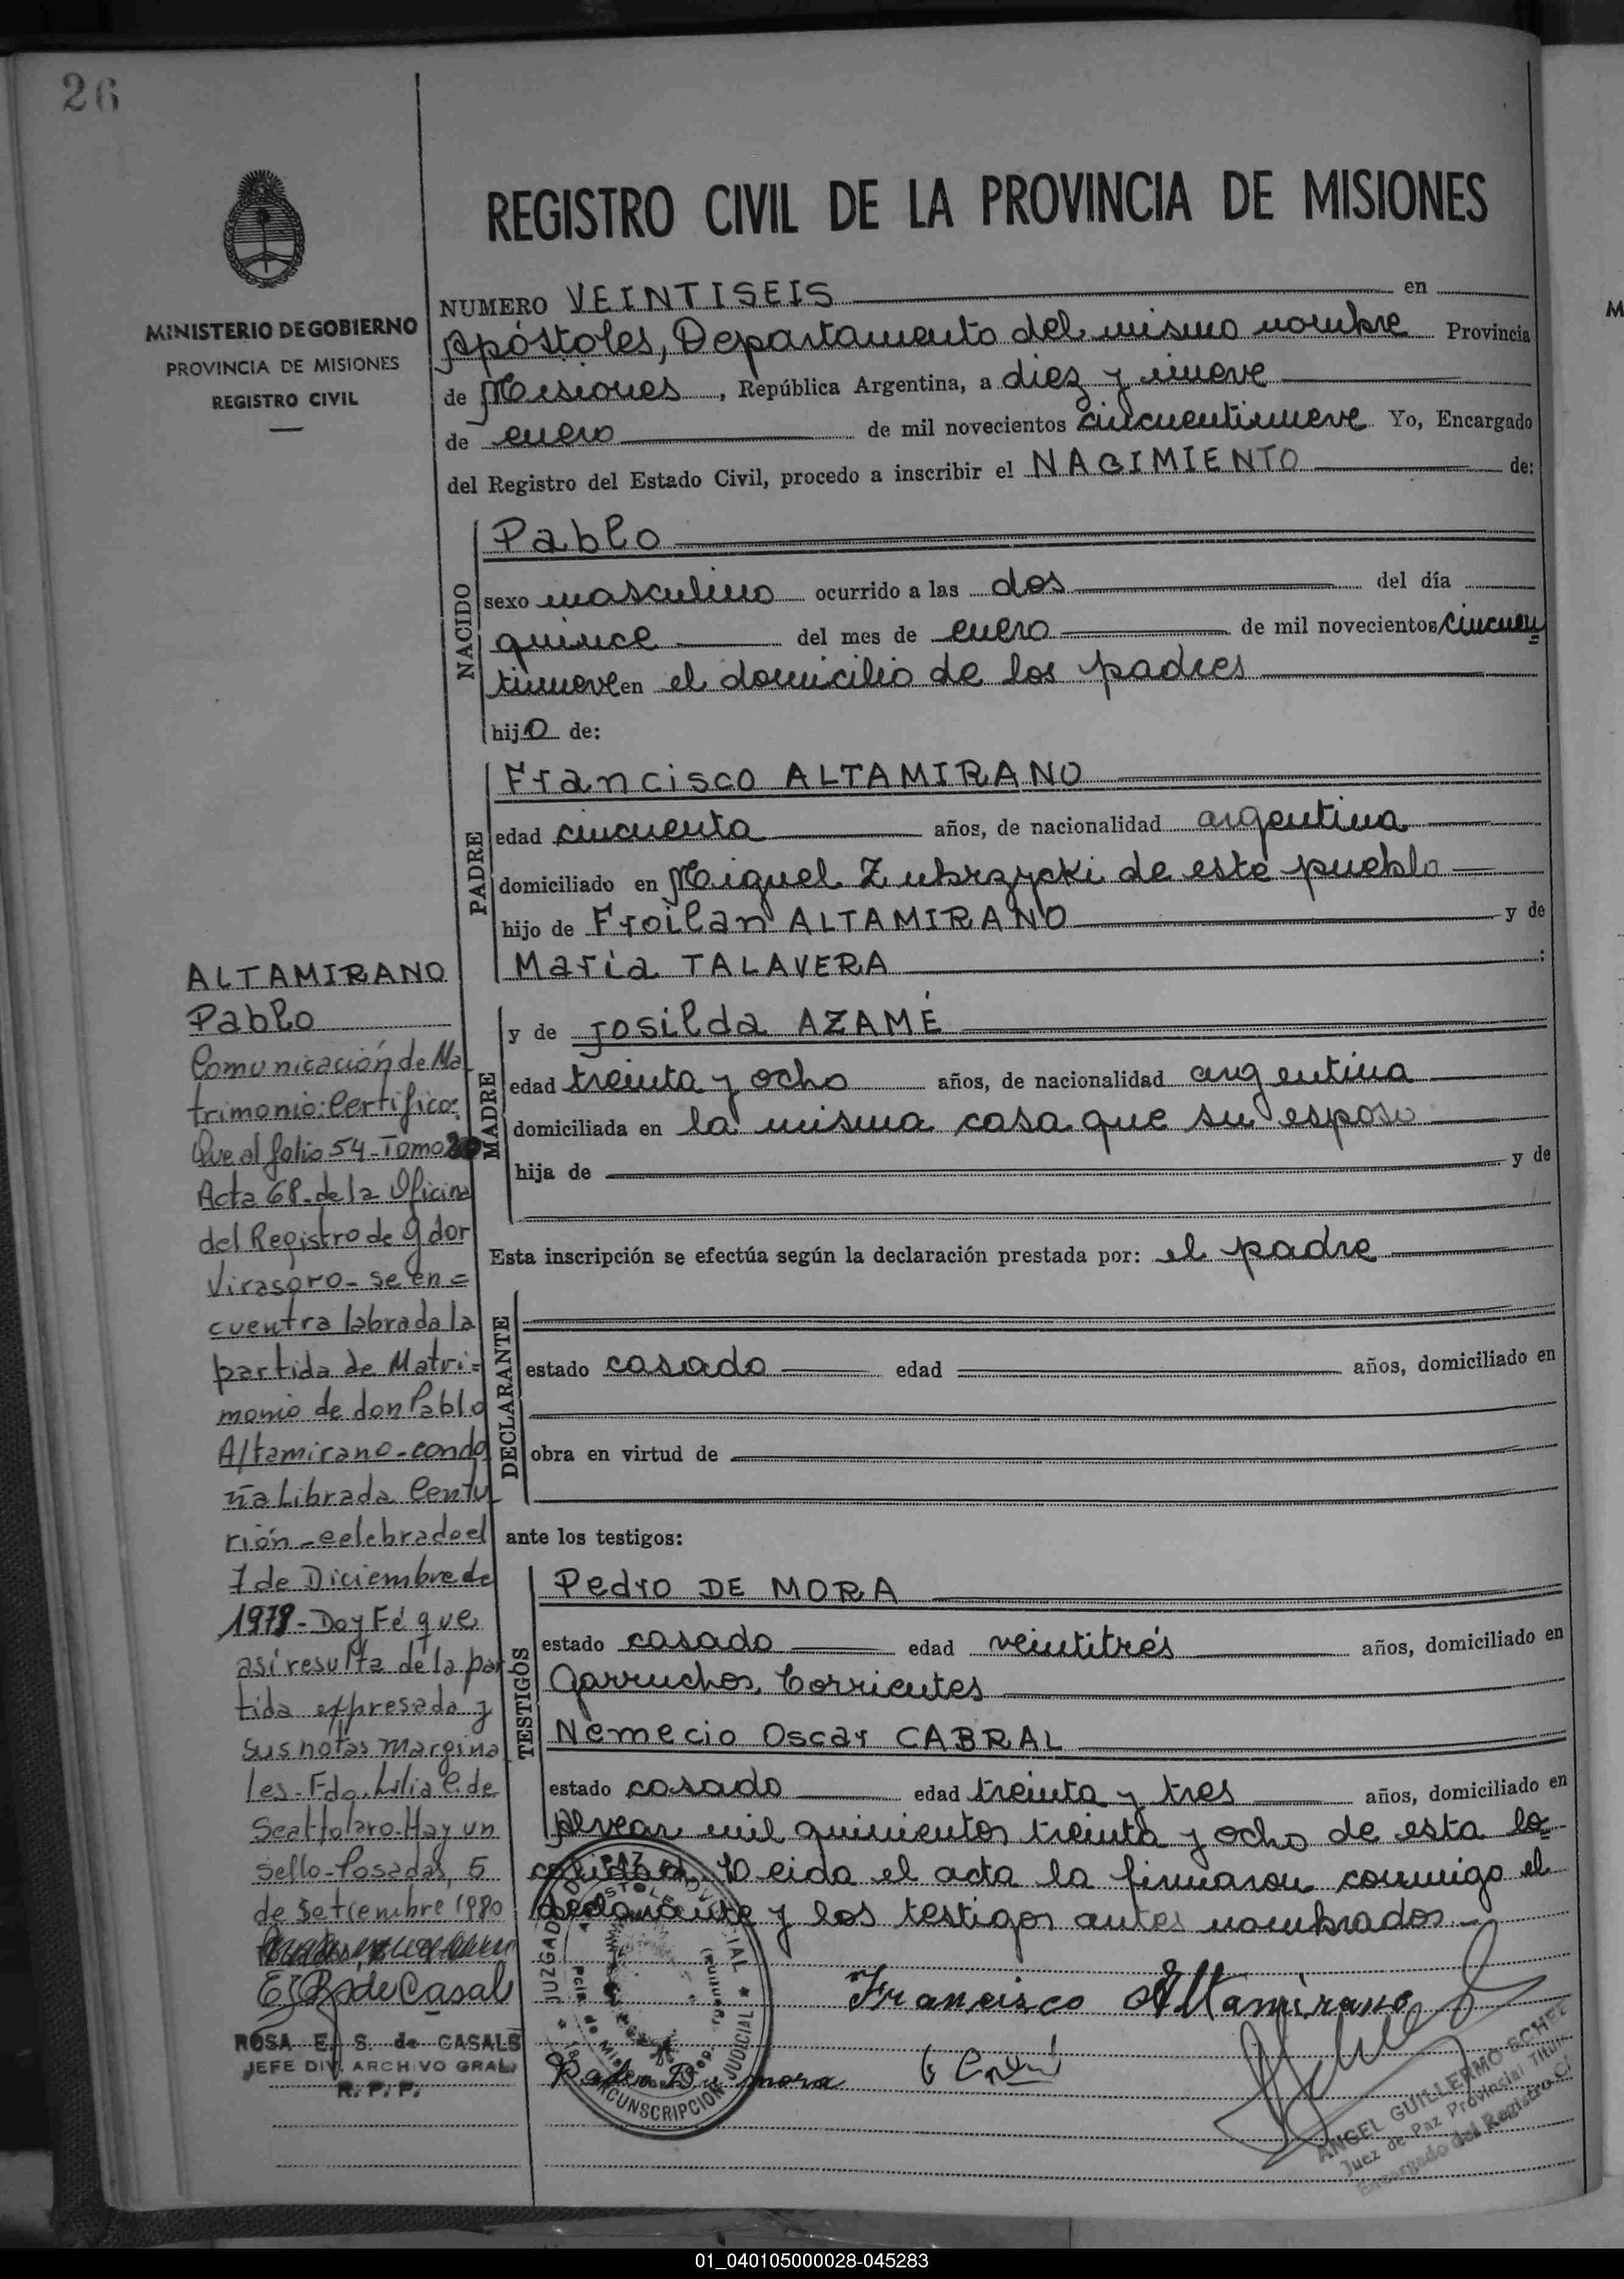 26
REGISTRO CIVIL DE LA PROVINCIA DE MISIONES
MINISTERIO DE GOBIERNO
PROVINCIA DE MISIONES
REGISTRO CIVIL
NUMERO VEINTISEIS en
Apóstoles, Departamento del mismo nombre Provincia
de Misiones, República Argentina, a diez y nueve
de enero de mil novecientos cincuentinueve Yo, Encargado
del Registro del Estado Civil, procedo a inscribir el NACIMIENTO de:
NACIDO
Pablo
sexo masculino ocurrido a las dos del día
quince del mes de enero de mil novecientos cincuen
tinueve en el domicilio de los padres
hijo de:
PADRE
Francisco ALTAMIRANO
edad cincuenta años, de nacionalidad argentina
domiciliado en Miguel Zubrzycki de este pueblo
hijo de Froilan ALTAMIRANO y de
Maria TALAVERA :
MADRE
y de Josilda AZAMÉ
edad treinta y ocho años, de nacionalidad argentina
domiciliada en la misma casa que su esposo
hija de y de
Esta inscripción se efectúa según la declaración prestada por: el padre
DECLARANTE
estado casado edad años, domiciliado en
obra en virtud de
ante los testigos:
TESTIGOS
Pedro DE MORA
estado casado edad veintitrés años, domiciliado en
Garruchos, Corrientes
Nemecio Oscar CABRAL
estado casado edad treinta y tres años, domiciliado en
Alvear mil quinientos treinta y ocho de esta lo=
calidad. Leida el acta la firmaron conmigo el
declarante y los testigos antes nombrados.-
Francisco Altamirano
ANGEL GUILLERMO SCHEE
Juez de Paz Provincial Titular
Encargado del Registro C
JUZGADO DE PAZ
CIRCUNSCRIPCION JUDICIAL
ALTAMIRANO
Pablo
Comunicación de Ma
trimonio: Certifico:
Que al folio 54-Tomo 20
Acta 68-de la Oficina
del Registro de Gdor
Virasoro- se en=
cuentra labrada la
partida de Matri=
monio de don Pablo
Altamirano-con do
ña Librada Centu
rión-celebrado el
7 de Diciembre de
1979-Doy Fé que
así resulta de la par
tida expresada y
sus notas margina
les-Fdo. Lilia C. de
Scattolaro-Hay un
sello-Posadas, 5
de Setiembre 1980
ROSA E. S. de CASALS
JEFE DIV. ARCHIVO GRAL.
R. P. P.
01_040105000028-045283